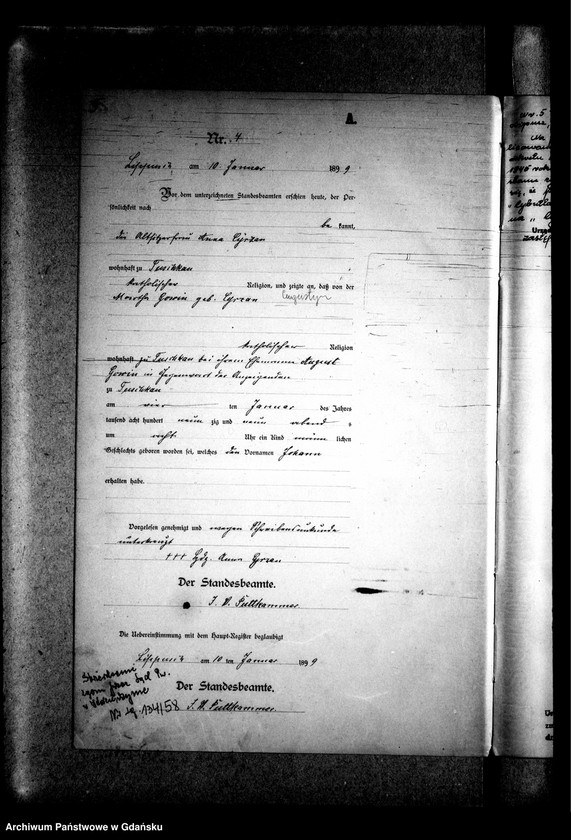 A.
Nr. 4
am 10. Januar 1899
Vor dem unterzeichneten Standesbeamten erschien heute, der Per-
sönlichkeit nach
be kannt,
die Altsitzerfrau Anna Cyrzan
wohnhaft zu Tuschkau
katholischer Religion, und zeigte an, daß von der
Martha Gowin geb. Cyrzan
Augustyn
katholischer Religion
wohnhaft zu Tuschkau bei ihrem Ehemanne August
Gowin in Gegenwart der Anzeigenden
zu Tuschkau
am vier ten Januar des Jahres
tausend acht hundert neun zig und neun abend s
um acht Uhr ein Kind männ lichen
Geschlechts geboren worden sei, welches den Vornamen Johann
erhalten habe.
Vorgelesen genehmigt und wegen Schreibensunkunde
unterkreuzt
+++ Hdz. Anna Cyrzan
Der Standesbeamte.
I. V. Puttkammer
Die Uebereinstimmung mit dem Haupt-Register beglaubigt
am 10 ten Januar 1899
Der Standesbeamte.
I. V. Puttkammer
134/58
Archiwum Państwowe w Gdańsku